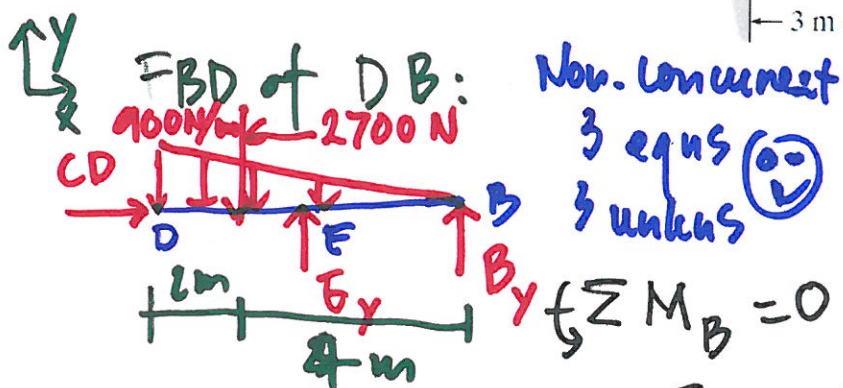 3 m
y
x
FBD of DB:
Non-concurrent
3 eqns
3 unkns
900N/m
2700 N
CD
D
E
B
2m
Ey
By
4 m
ΣM_B = 0